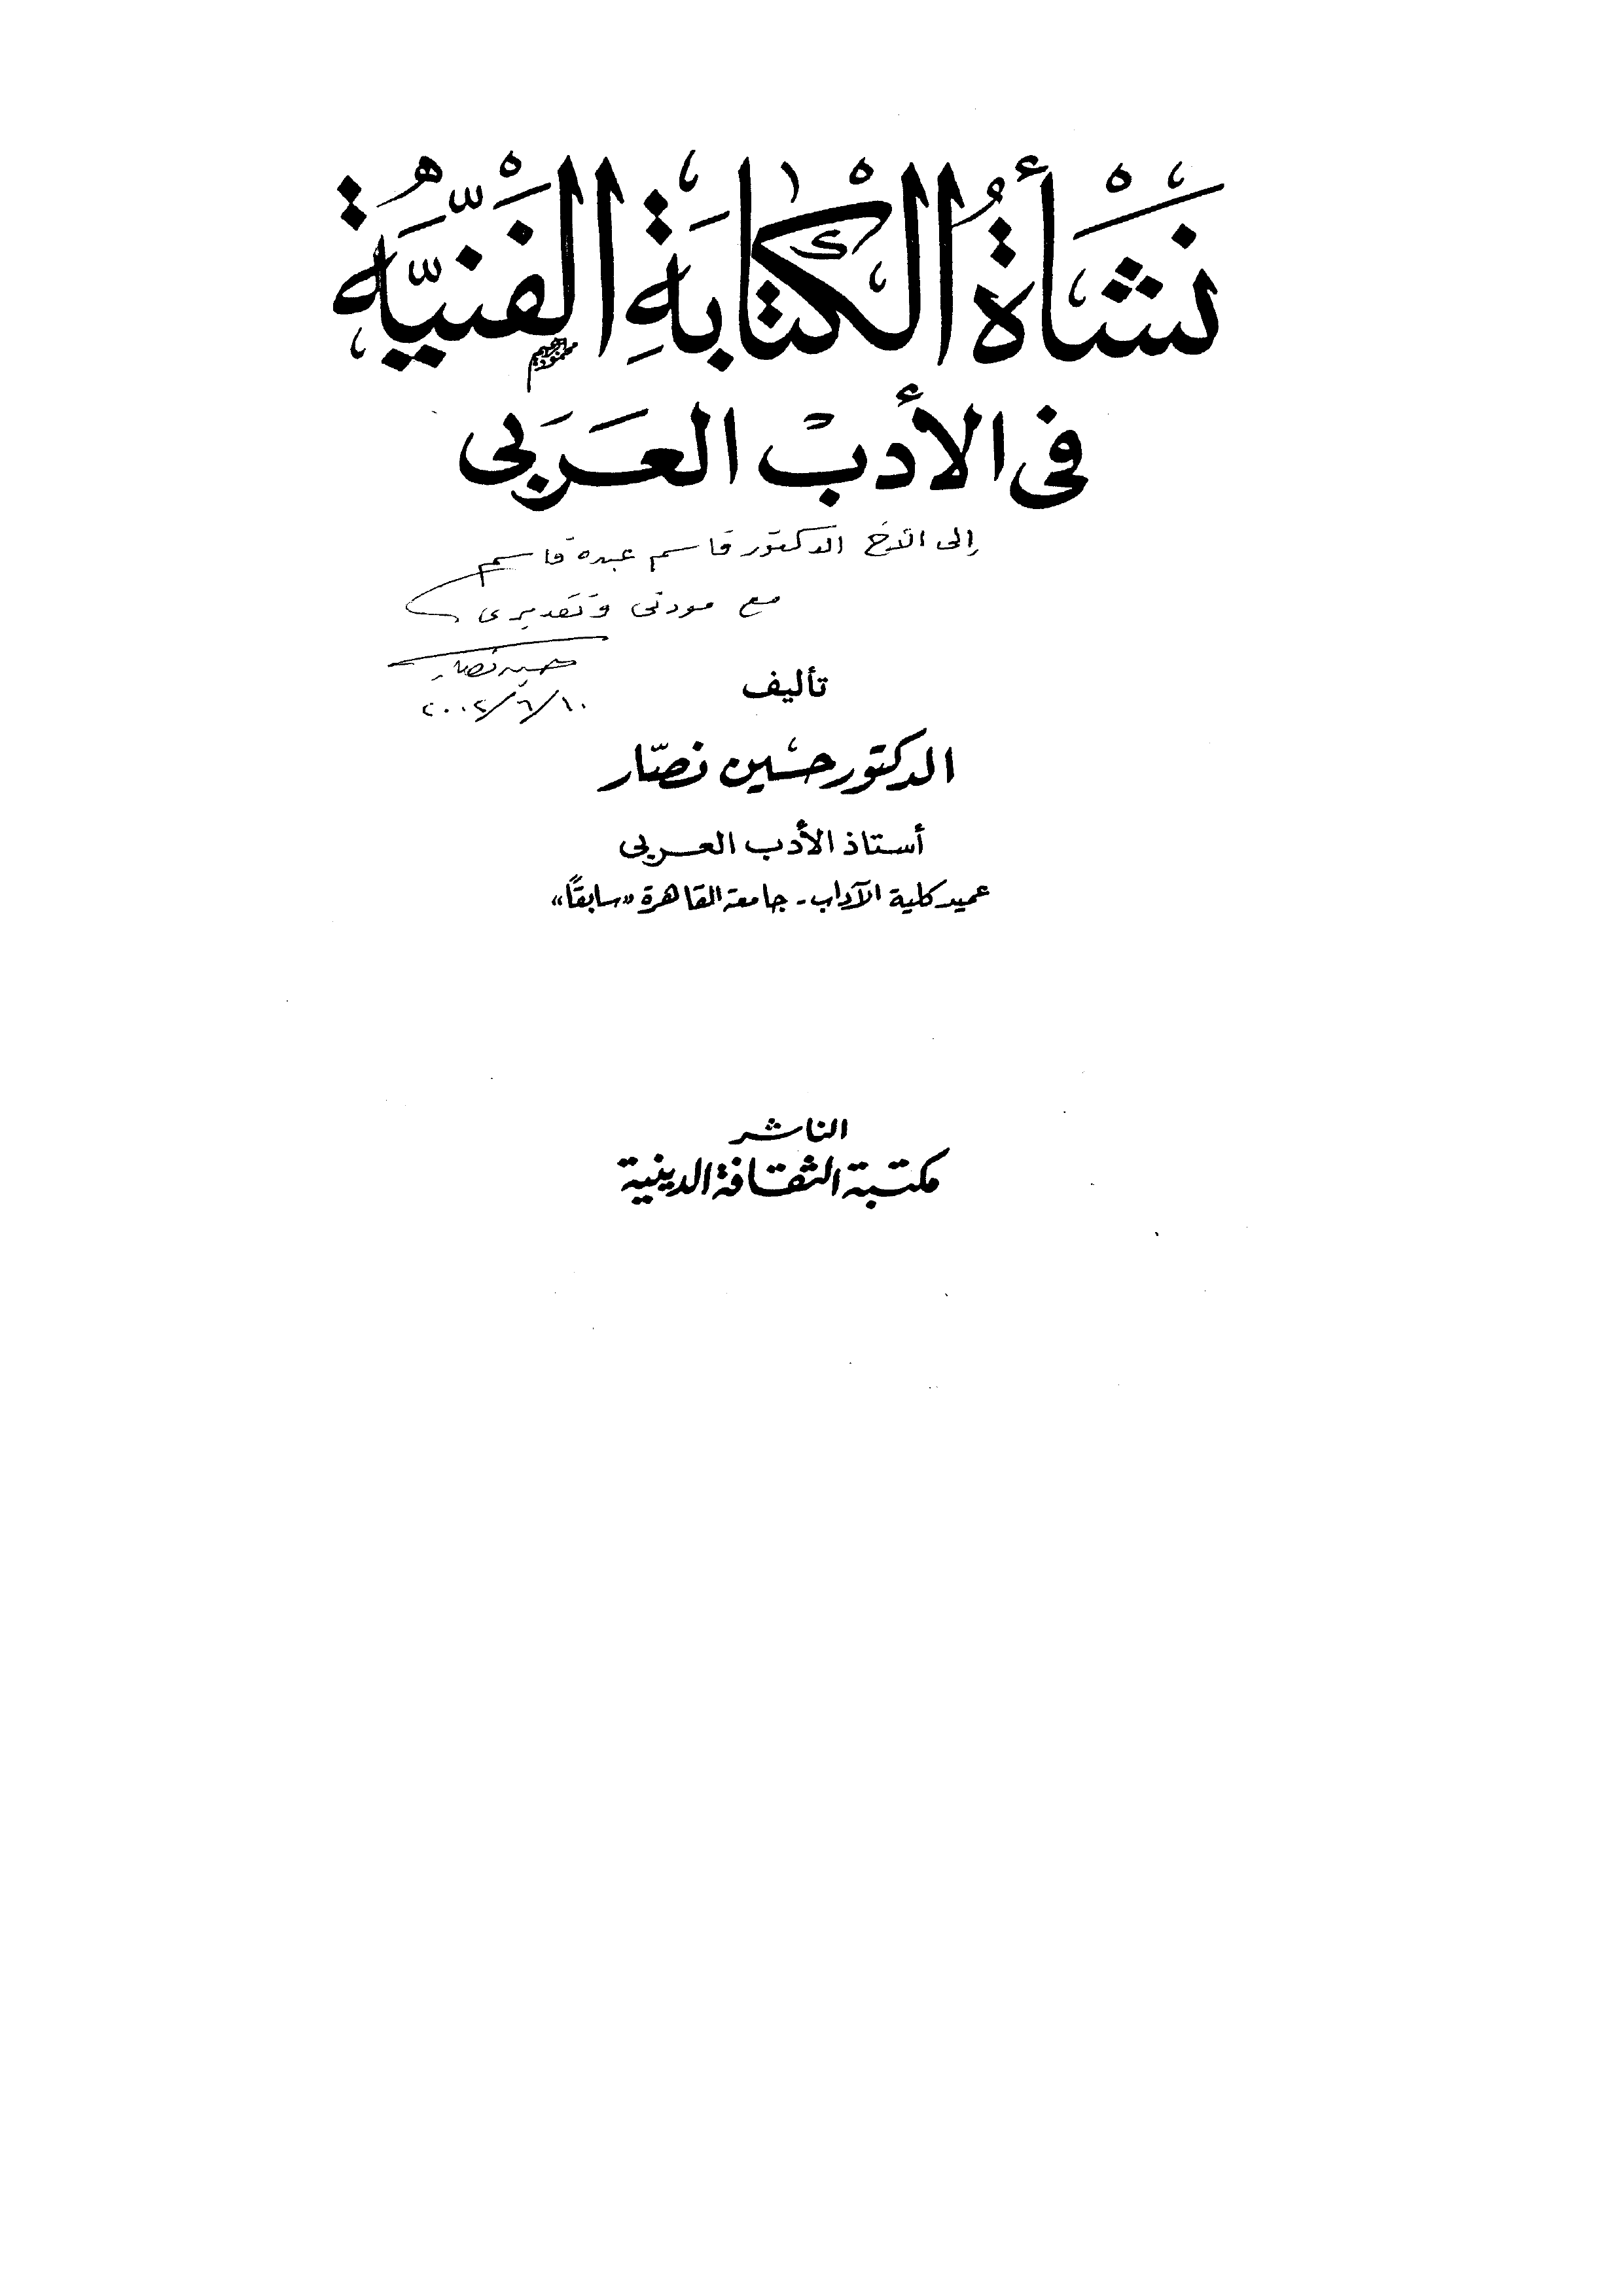 نَشْأَةُ الْكِتَابَةِ الْفَنِّيَّةِ
فى الأدب العَرَبى
إلى الأخ الدكتور قاسم عبده قاسم
مع مودتى وتقديرى
حسين نصار
١٠/٦/٢٠٠٢
تأليف
الدكتور حسَين نصّار
أستاذ الأدب العربى
عميد كلية الآداب - جامعة القاهرة «سابقًا»
الناشر
مكتبة الثقافة الدينية